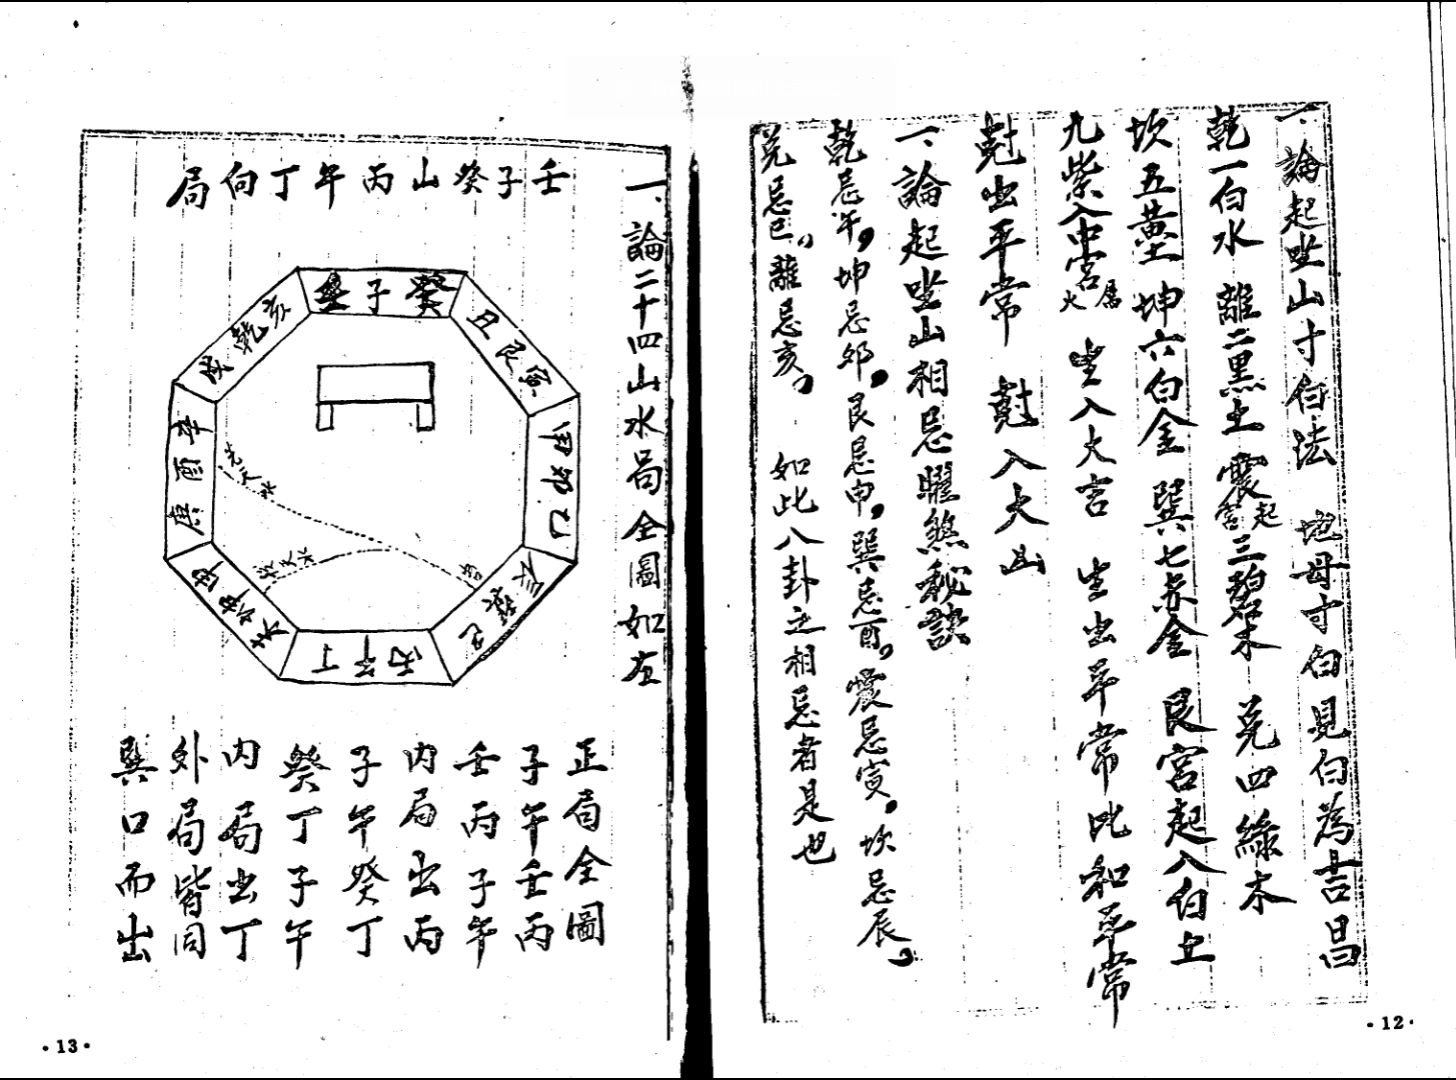 一、論起坐山寸白法 地母寸白見白為吉昌
乾一白水 離二黑土 震宮起三碧木 兌四綠木
坎五黃土 坤六白金 巽七赤金 艮宮起八白土
九紫入中宮屬火 生入大吉 生出平常比和平常
尅出平常 尅入大凶
一、論起坐山相忌曜煞秘訣
乾忌午,坤忌卯,艮忌申,巽忌酉,震忌寅,坎忌辰,
兌忌巳,離忌亥, 如此八卦之相忌者是也
·12·
一、論二十四山水局全圖如左
壬子癸山丙午丁向局
壬子癸
丑艮寅
甲卯乙
辰巽巳
丙午丁
未坤申
庚酉辛
戌乾亥
先天水
正局全圖
子午壬丙
壬丙子午
內局出丙
子午癸丁
癸丁子午
內局出丁
外局皆同
巽口而出
·13·